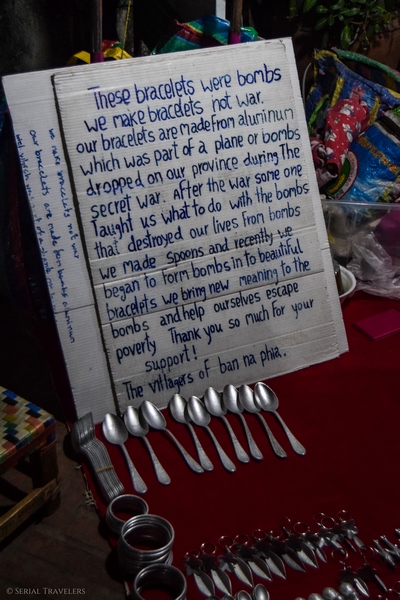 These bracelets were bombs
we make bracelets not war.
our bracelets are made from aluminun
which was part of a plane or bombs
dropped on our province during The
secret war. After the war some one
Taught us what to do with the bombs
that destroyed our lives from bombs
we made spoons and recently we
began to form bombs in to beautiful
bracelets we bring new meaning to the
bombs and help ourselves escape
poverty Thank you so much for your
support!
The villagers of ban na phia.
we make bracelets not war
our bracelets are made from bombs aluminun
© SERIAL TRAVELERS